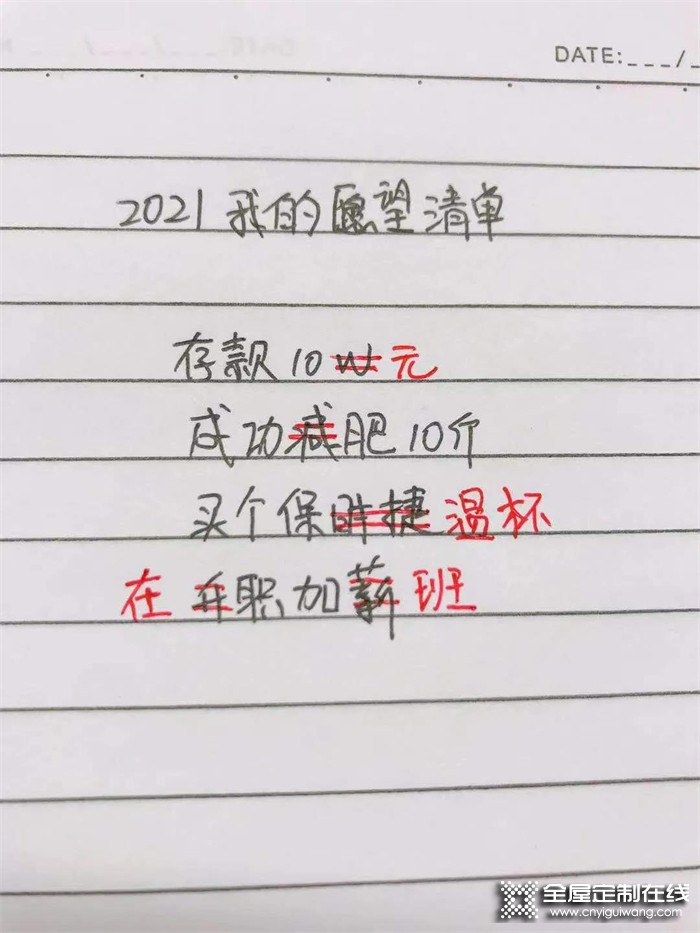 DATE:___/_
2021我的愿望清单
存款10W元
成功减肥10斤
买个保时捷温杯
在升职加薪班
全屋定制在线
www.cnyiguiwang.com